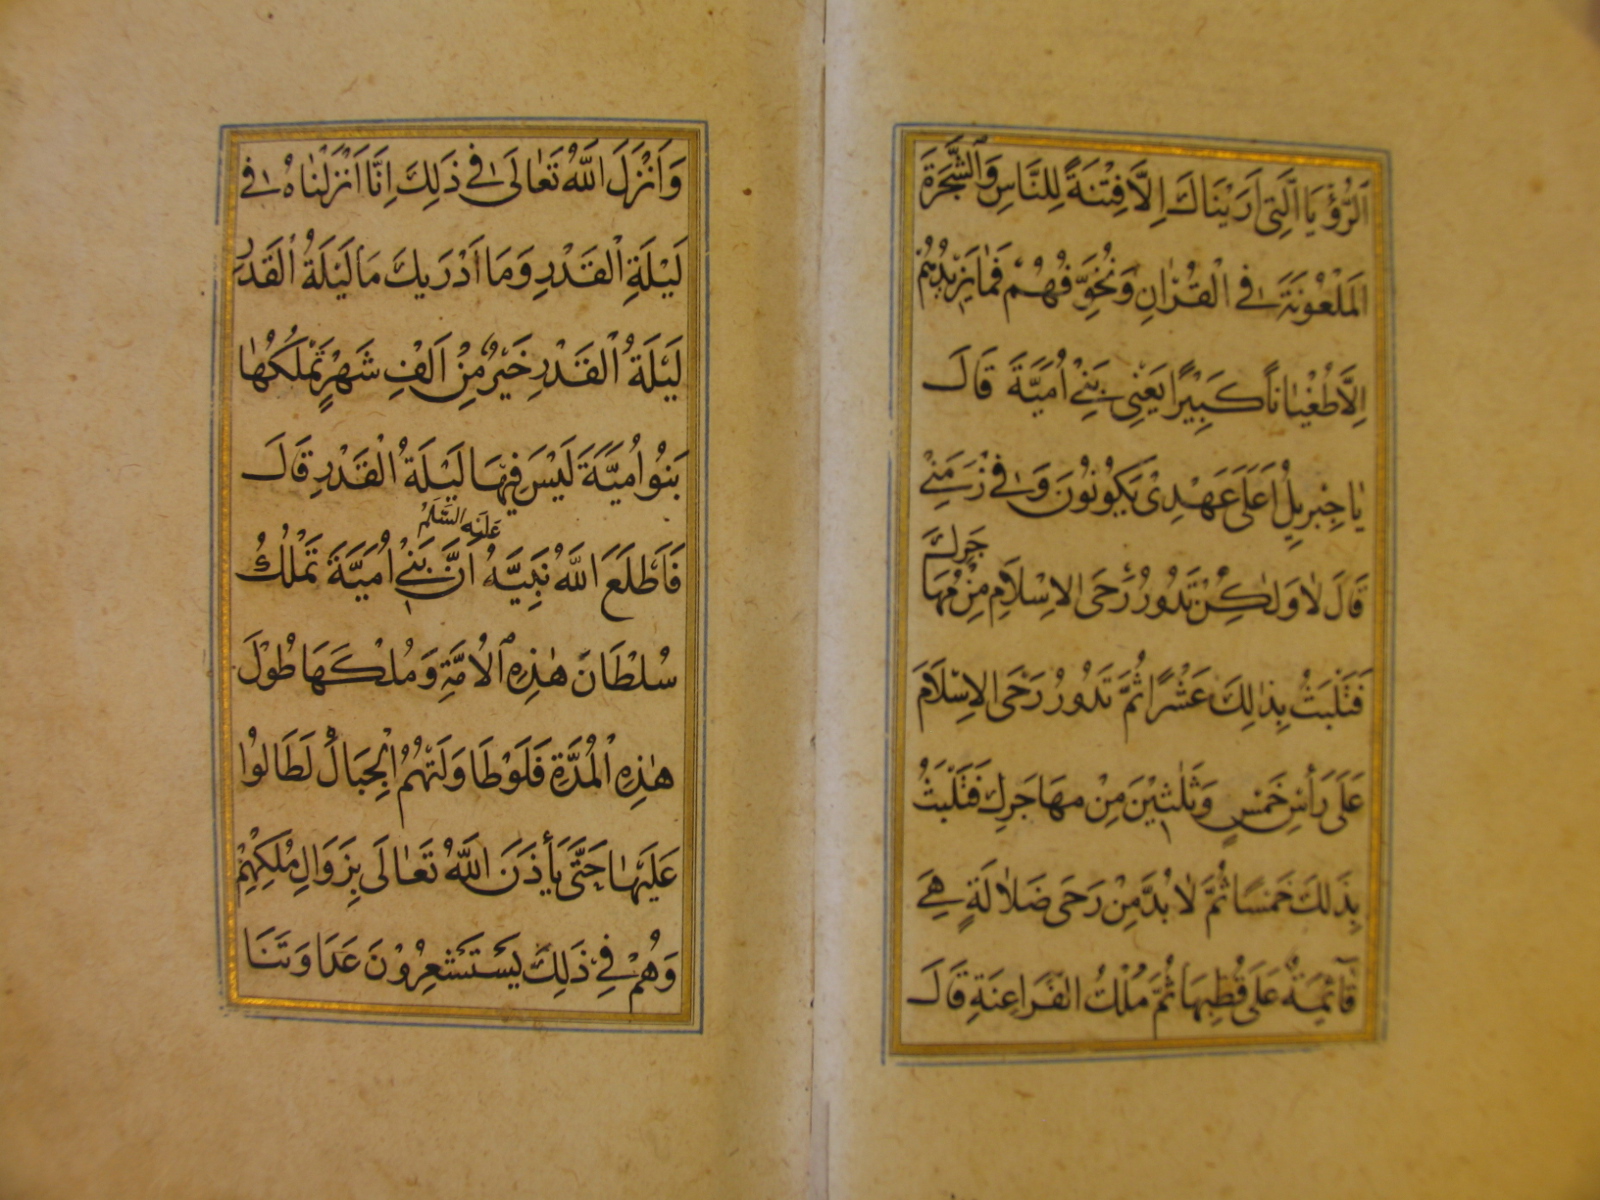 اَلرُّؤْيَا الَّتِى اَرَيْنَاكَ اِلَّا فِتْنَةً لِلنَّاسِ وَالشَّجَرَةَ
الْمَلْعُوْنَةَ فِى الْقُرْاٰنِ وَنُخَوِّفُهُمْ فَمَا يَزِيْدُهُمْ
اِلَّا طُغْيَانًا كَبِيْرًا يَعْنِى بَنِىْ اُمَيَّةَ قَالَ
يَا جِبْرِيْلُ اَعَلَى عَهْدِىْ يَكُوْنُوْنَ وَفِى زَمَنِىْ
قَالَ لَا وَلٰكِنْ تَدُوْرُ رَحَى الْاِسْلَامِ مِنْ مُهَا
جَرِكَ
فَتَلْبَثُ بِذٰلِكَ عَشْرًا ثُمَّ تَدُوْرُ رَحَى الْاِسْلَامِ
عَلَى رَأْسِ خَمْسٍ وَثَلٰثِيْنَ مِنْ مهَاجَرِكَ فَتَلْبَثُ
بِذٰلِكَ خَمْسًا ثُمَّ لَا بُدَّ مِنْ رَحَى ضَلَالَةٍ هِىَ
قَآئِمَةٌ عَلَى قُطْبِهَا ثُمَّ مُلْكُ الْفَرَاعِنَةِ قَالَ
وَاَنْزَلَ اللّٰهُ تَعَالَى فِى ذٰلِكَ اِنَّا اَنْزَلْنَاهُ فِى
لَيْلَةِ الْقَدْرِ وَمَا اَدْرَيكَ مَا لَيْلَةُ الْقَدْرِ
لَيْلَةُ الْقَدْرِ خَيْرٌ مِنْ اَلْفِ شَهْرٍ تَمْلِكُهَا
بَنُوْ اُمَيَّةَ لَيْسَ فِيْهَا لَيْلَةُ الْقَدْرِ قَالَ
عَلَيْهِ السَّلَمْ
فَاَطْلَعَ اللّٰهُ نَبِيَّهُ اَنَّ بَنِىْ اُمَيَّةَ تَمْلِكُ
سُلْطَانَ هٰذِهِ الْاُمَّةِ وَمُلْكَهَا طُوْلَ
هٰذِهِ الْمُدَّةِ فَلَوْ طَاوَلَتْهُمُ الْجِبَالُ لَطَالُوْا
عَلَيْهَا حَتَّى يَأْذَنَ اللّٰهُ تَعَالَى بِزَوَالِ مُلْكِهِمْ
وَهُمْ فِى ذٰلِكَ يَسْتَشْعِرُوْنَ عَدَاوَتَنَا